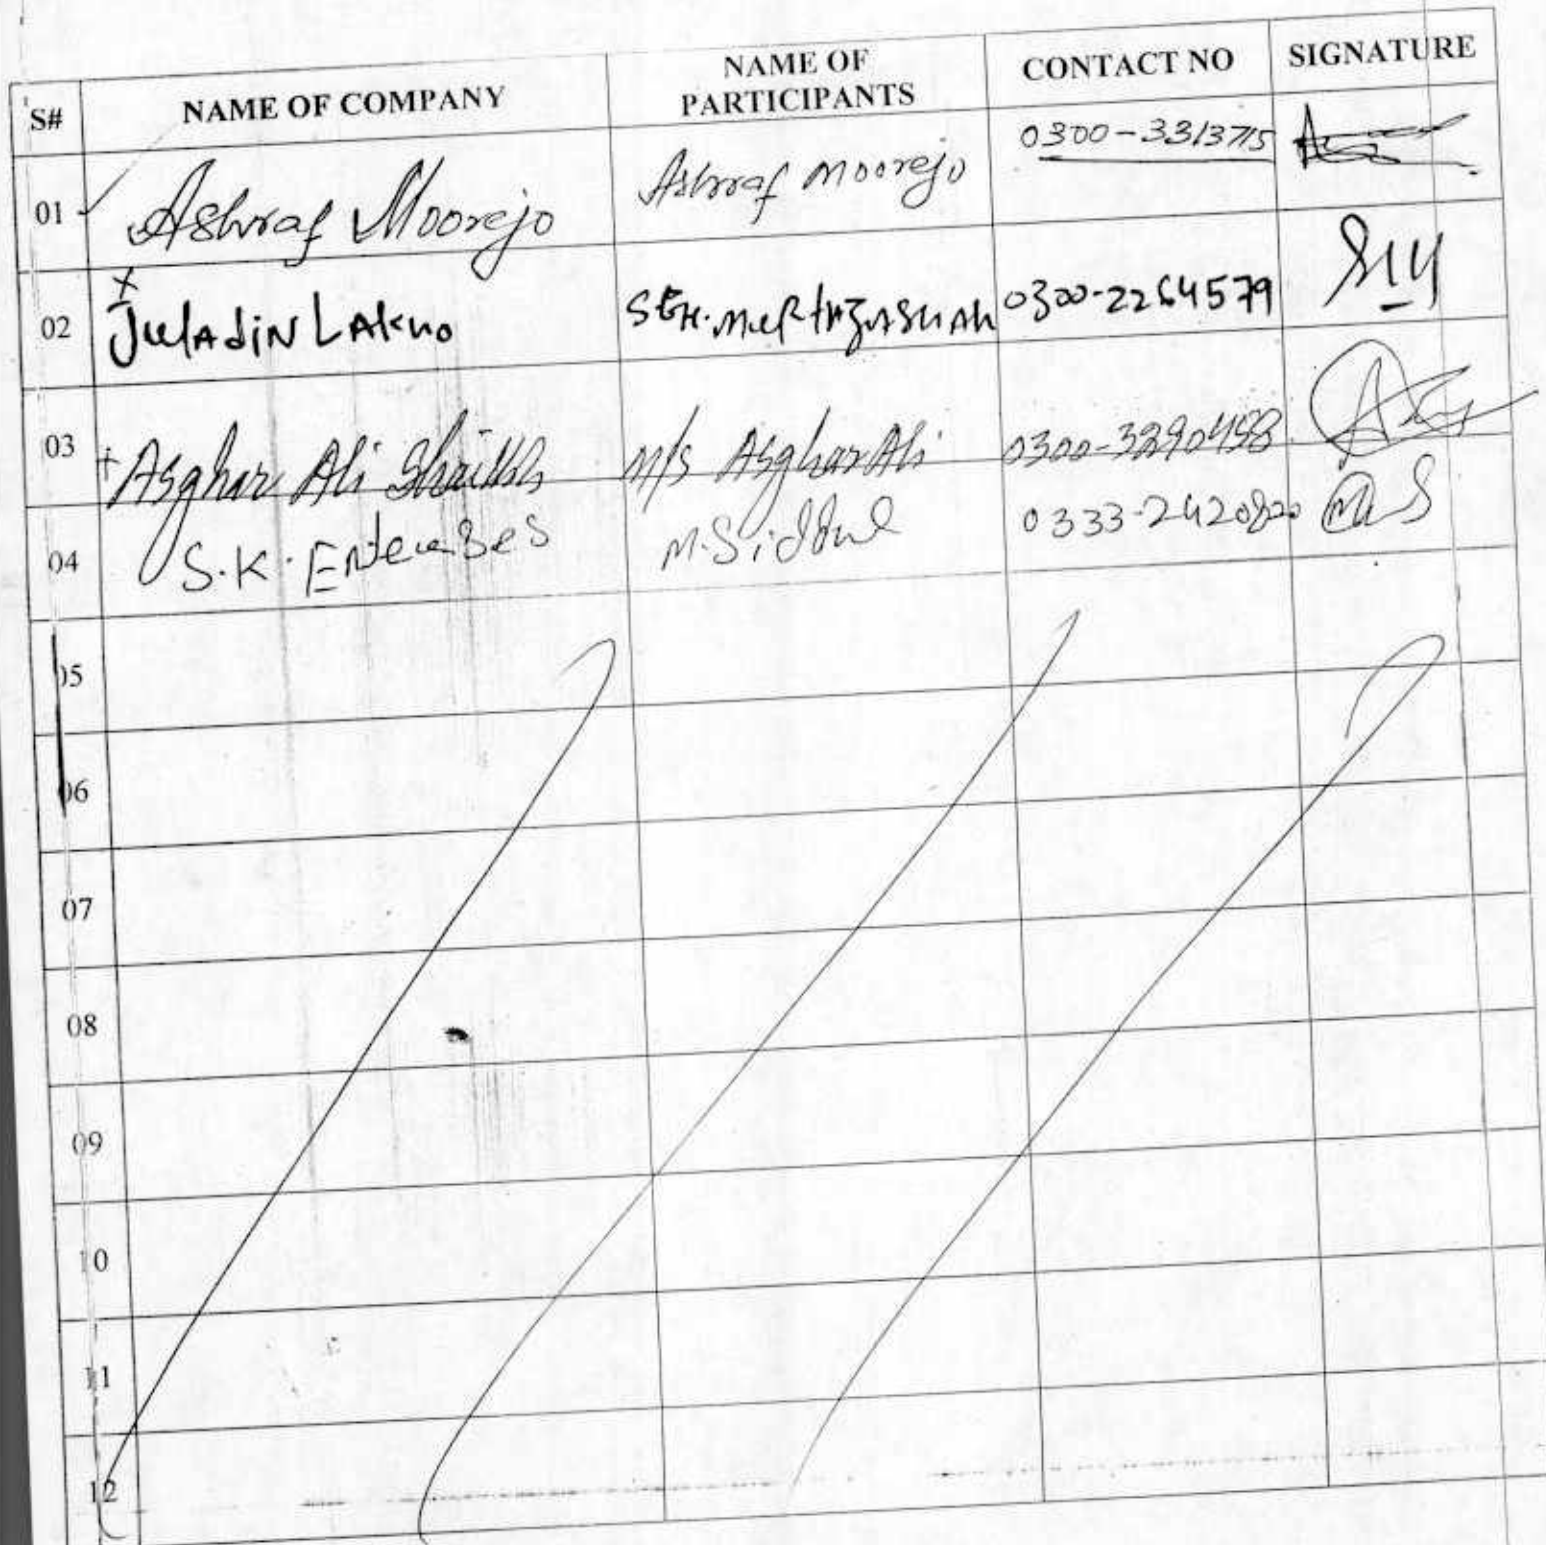 S# NAME OF COMPANY NAME OF PARTICIPANTS CONTACT NO SIGNATURE
01 Ashraf Moorejo Ashraf Moorejo 0300-3313715
02 JulAdiN LAkho MuRtAzA SHAH 0300-2264579
03 Asghar Ali Shaikh M/s Asghar Ali 0300-3290498
04 S.K. M. 0333-2420820
05
06
07
08
09
10
11
12